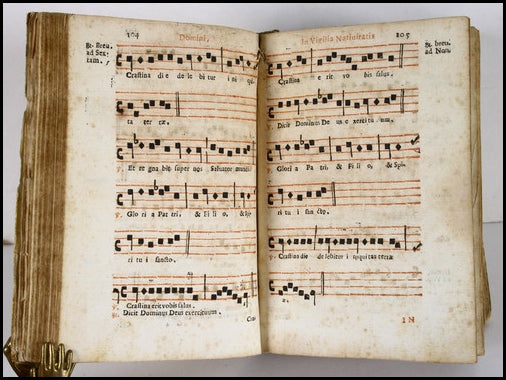 104 Domini,
℞. Breu.
ad Sex-
tam.
Crastina di e de le bi tur i ni qui-
ta ter ræ.
℣. Et re gna bit super nos Salvator mundi.
℣. Glo ri a Pa tri, & Fi li o, & Spi-
ri tu i sancto.
℣. Crastina erit vobis salus.
℞. Dicit Dominus Deus exercituum.
Cra-
In Vigilia Nativitatis 105
℞. breu.
ad Non.
Crastina e rit vo bis salus.
℣. Dicit Dominus De us e xerci tu um.
℣. Glori a Pa tri, & Fi li o, & Spi-
ri tu i sancto.
℣. Crastina die de lebitur i niqui tas terræ
a.
IN